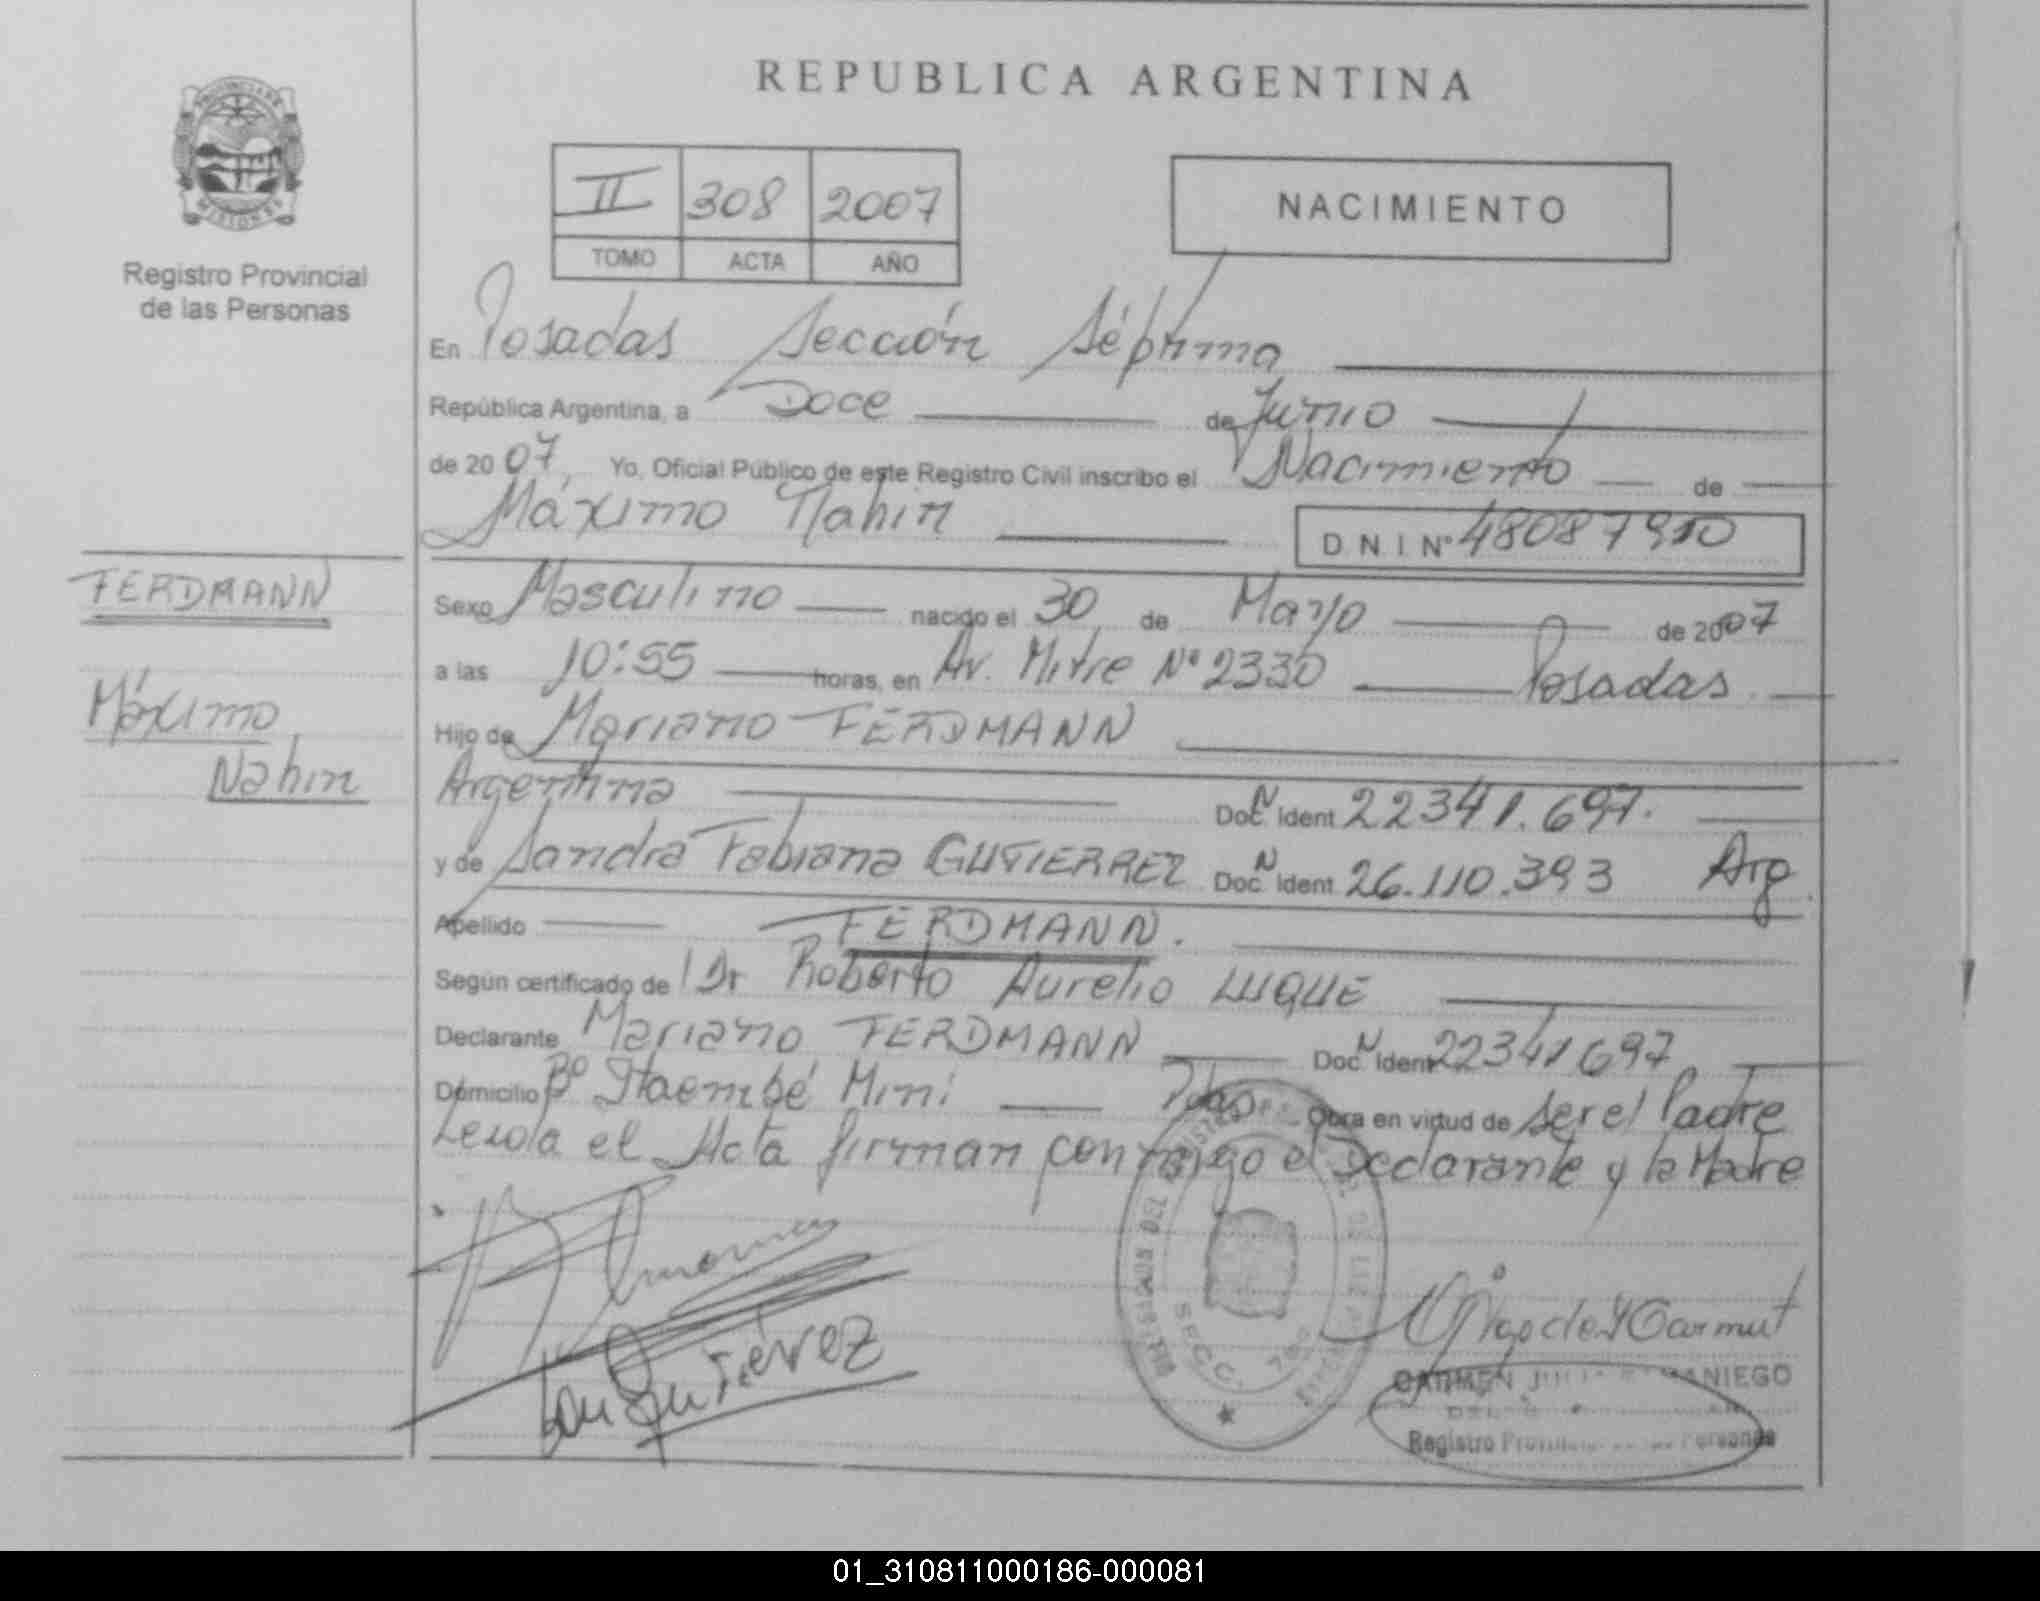 REPUBLICA ARGENTINA
PROVINCIA DE
MISIONES
Registro Provincial
de las Personas
II 308 2007
TOMO ACTA AÑO
NACIMIENTO
En Posadas Sección Séptima
República Argentina, a Doce de Junio
de 2007, Yo, Oficial Público de este Registro Civil inscribo el Nacimiento de
Máximo Nahin D.N.I Nº 48087910
FERDMANN
Máximo
Nahin
Sexo Masculino nacido el 30 de Mayo de 2007
a las 10:55 horas, en Av. Mitre Nº 2330 Posadas
Hijo de Mariano FERDMANN
Argentina Doc. N Ident 22341.697.
y de Sandra Fabiana GUTIERREZ Doc. N Ident 26.110.393 Arg
Apellido FERDMANN.
Según certificado de Dr Roberto Aurelio LUQUE
Declarante Mariano FERDMANN Doc. N Ident 22341697
Domicilio Bº Itaembé Mini Obra en virtud de ser el Padre
Leida el Acta firman conmigo el Declarante y la Madre
Gutiérrez
SECC. 7
CARMEN MANIEGO
Registro
01_310811000186-000081